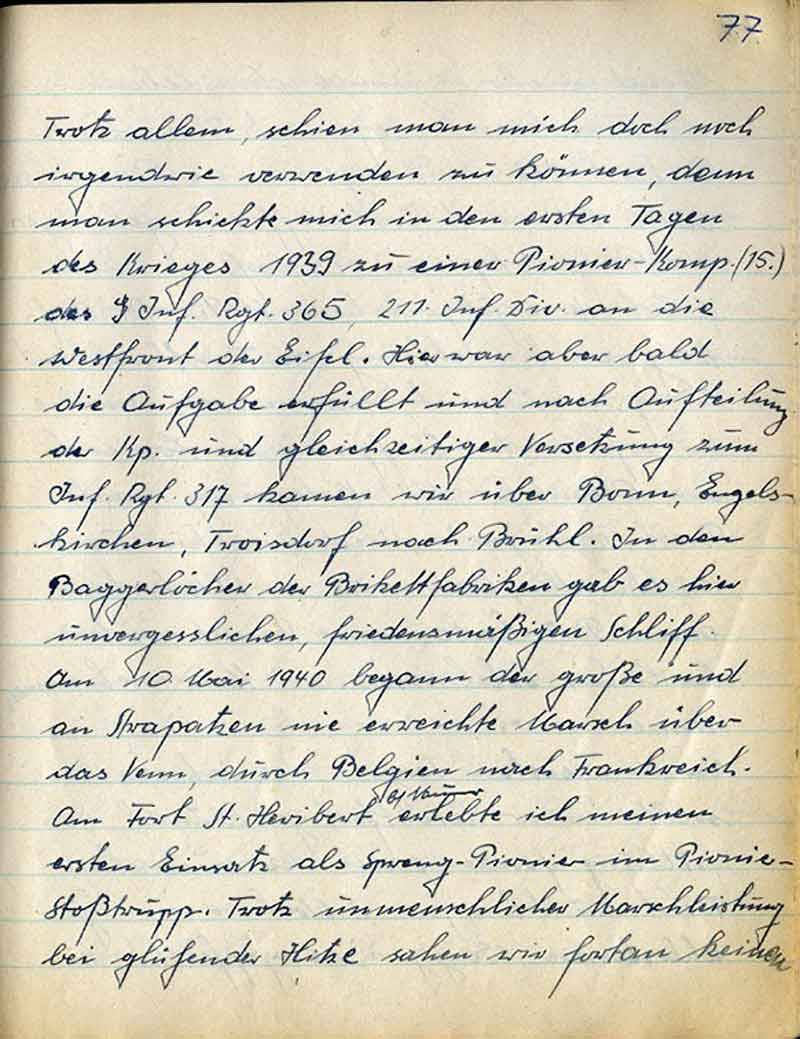 77
Trotz allem, schien man mich doch noch
irgendwie verwenden zu können, denn
man schickte mich in den ersten Tagen
des Krieges 1939 zu einer Pionier-Komp. (15.)
des Inf. Rgt. 365, 211. Inf. Div. an die
Westfront der Eifel. Hier war aber bald
die Aufgabe erfüllt und nach Aufteilung
der Kp. und gleichzeitiger Versetzung zum
Inf. Rgt. 317 kamen wir über Bonn, Engels-
kirchen, Troisdorf nach Brühl. In den
Baggerlöcher der Brikettfabriken gab es hier
unvergesslichen, friedensmäßigen Schliff.
Am 10. Mai 1940 begann der große und
an Strapatzen nie erreichte Marsch über
das Venn, durch Belgien nach Frankreich.
Am Fort St. Heribert erlebte ich meinen
ersten Einsatz als Spreng-Pionier im Pionier-
Stoßtrupp. Trotz unmenschlicher Marschleistung
bei glühender Hitze sahen wir fortan keinen